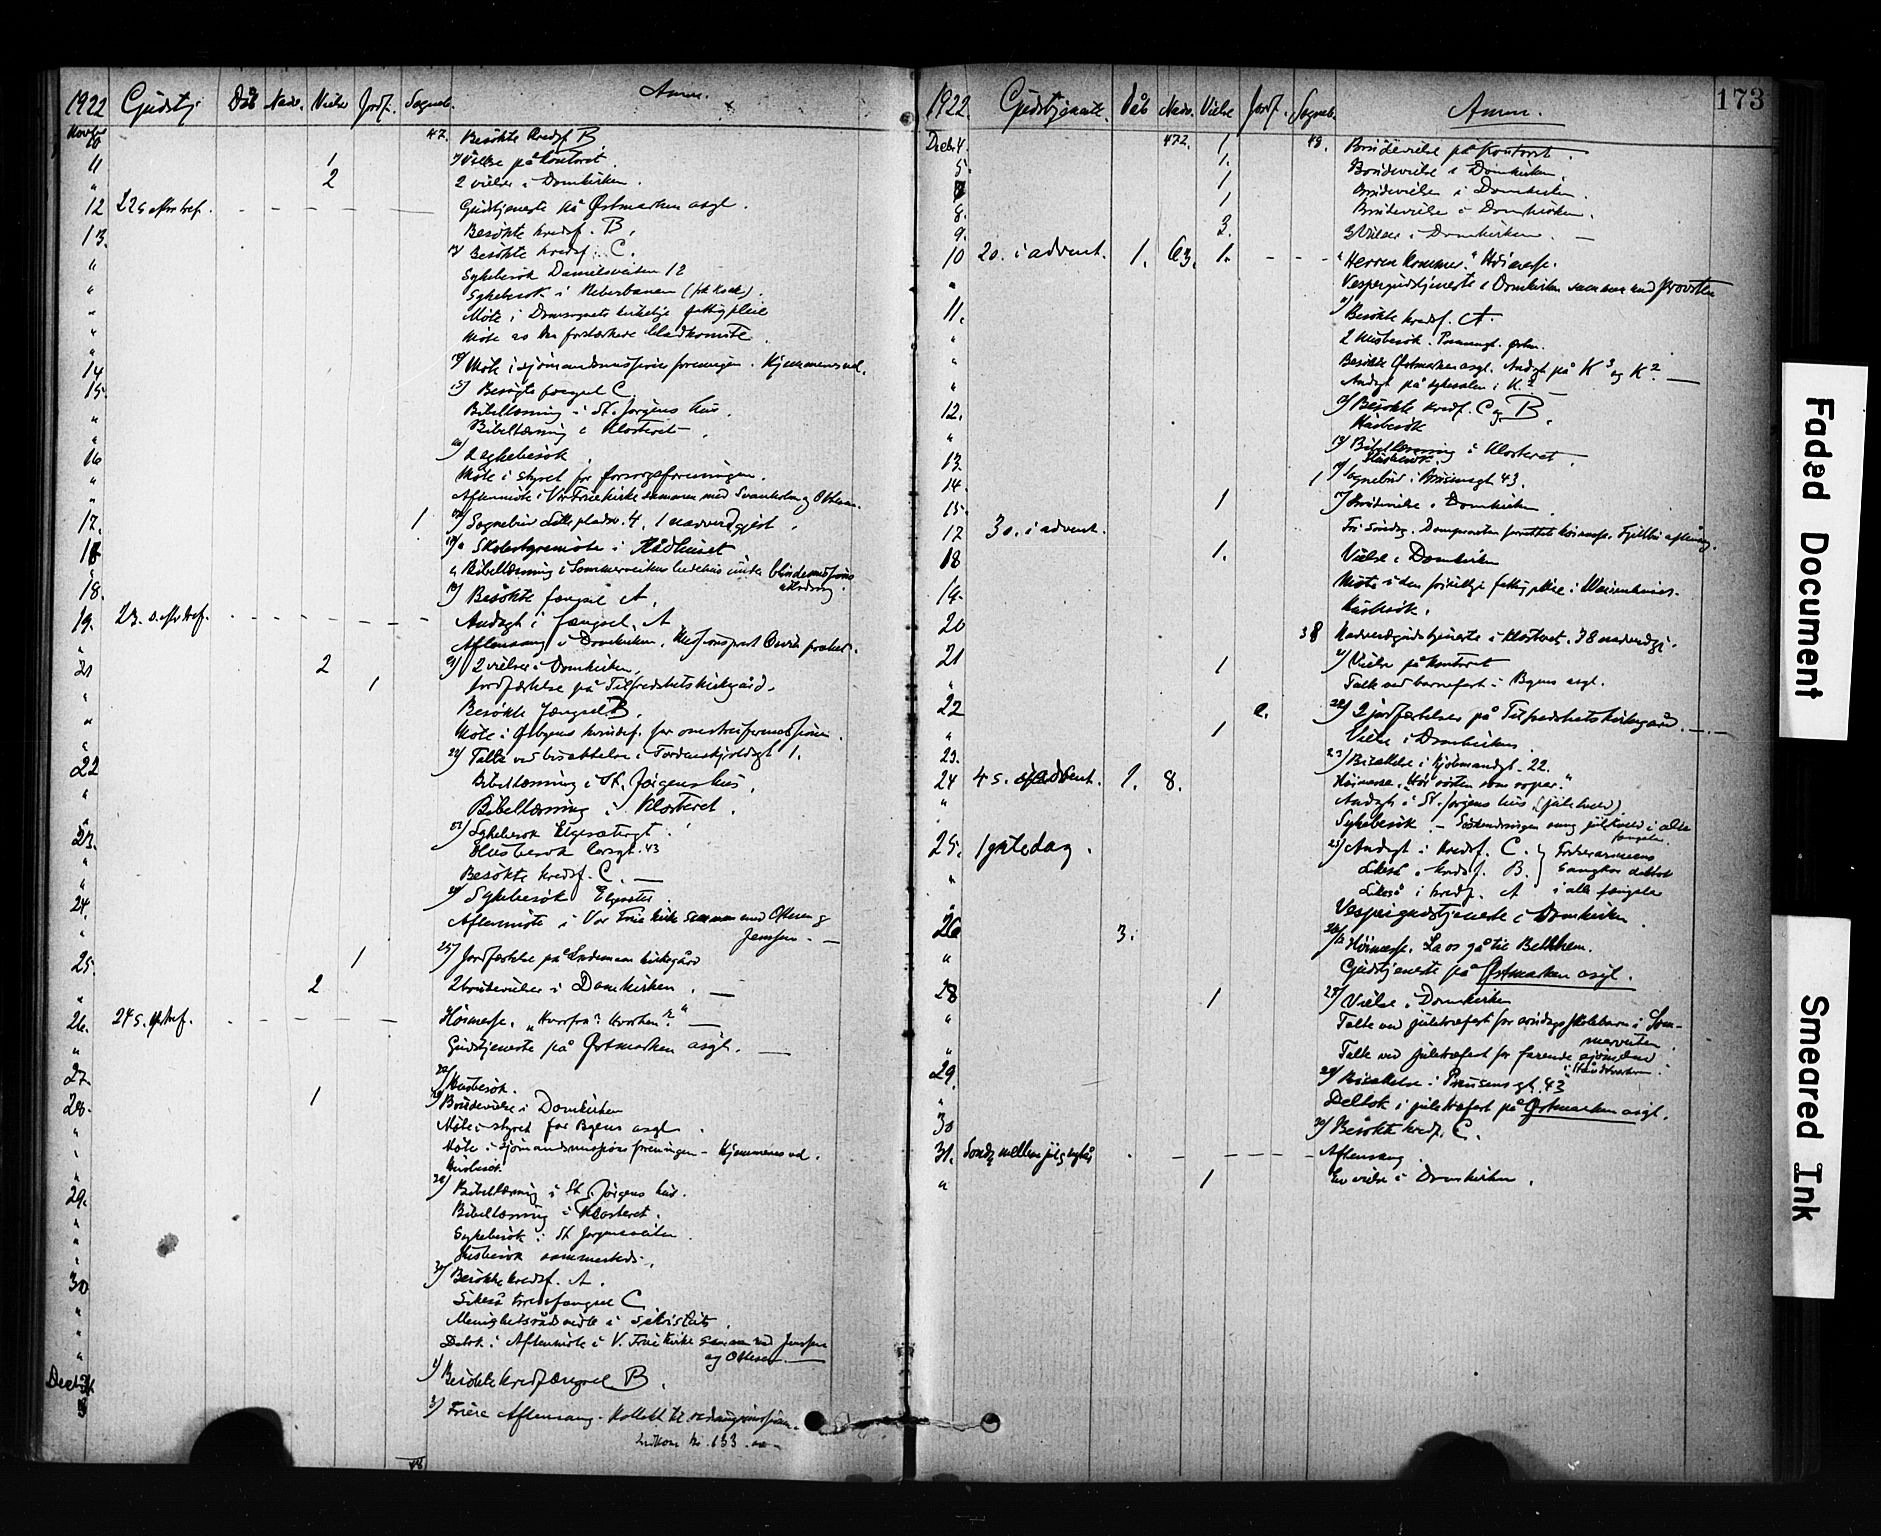 1922 Gudstj. Dåb Nadv. Vielse Jordf. Sogneb. Anm.
Novbr 10 47. Besökte Kredsf. B
11 1 Vielse på Kontoret.
" 2 2 vielser i Domkirken.
12 22 s. eftr. tref. Gudstjeneste på Østmarken asyl.
13. Besökte kredsf. B.
" Besökte kredsf. C.
" Sykebesök Danielsveiten 12
" Sykebesök i
" Möte i Domsognets kirkelige fattigpleie
" Möte av den forsterkede bladkomite.
14 Möte i sjömandsmissionsforeningen. Hjemmens vel.
15. Besögte fængsel C.
" Bibellæsning i St. Jörgens hus.
" Bibellæsning i Klosteret.
16 2 sykebesök
" Möte i styret for Forsorgsforeningen.
" Aftenmöte i Vor Frue kirke sammen med Svanholm og Ottesen.
17. 1 Sognebud 4. 1 nadverdgjest.
18 Skolestyremöte i Rådhuset
" Bibellæsning i Sommerveitens bedehus under blindemissions
18. Besökte fængsel A.
19. 23. s. eftr tref. Andagt i fængsel A
" Aftensang i Domkirken.
21 2 2 vielser i Domkirken.
" 1 Jordfæstelse på Tilfredshets kirkegård.
" Besökte fængsel B.
" Möte i
22 Talte ved bisættelse i Tordenskjoldsgt 1.
" Bibellæsning i St. Jörgens hus.
" Bibellæsning i Klosteret.
23. Sykebesök Elgesætergt.
" Husbesök 43
" Besökte kredsf. C.
24. Sykebesök Elgesæter.
" Aftenmöte i Vor Frue kirke sammen med Ottesen og
Jenssen.
25. 1 Jordfæstelse på Lademoen kirkegård
" 2 2 brudevielser i Domkirken.
26. 24 s. e. tref. Höimesse. "Hvorfra? Hvorhen?"
" Gudstjeneste på Østmarken asyl.
27. Husbesök.
28. 1 Brudevielse i Domkirken
" Möte i styret for Byens asyl.
" Möte i Sjömandsmissionsforeningen - Hjemmens vel.
" Husbesök
29. Bibellæsning i St. Jörgens hus.
" Bibellæsning i Klosteret.
" Sykebesök i St Jörgensveiten.
" Husbesök sammesteds.
30 Besökte kredsf. A.
" Likeså kredsfængsel C
" Menighetsrådsmöte i Sakristiet.
" Deltok i Aftenmöte i V. Frue Kirke sammen med Jenssen
og Ottesen.
Decbr. 1. Besökte kredsfængsel B.
3 Aftensang. Kollekt til
Indkom kr. 133.
48
173
1922. Gudstjeneste. Dåb Nadv. Vielse Jordf. Sogneb. Anm.
Decbr. 4. 472. 1 48. Brudevielse på Kontoret.
5. 1. Brudevielse i Domkirken.
1 Brudevielse i Domkirken.
8. 1 Brudevielse i Domkirken.
9. 3. 3 Vielser i Domkirken.
10 2 s. i advent. 1. 63. 1. "Herren kommer." Höimesse.
" Vespergudstjeneste i Domkirken sammen med provsten
11. Besökte kredsf. A.
" 2 husbesök.
" Besökte Østmarken asyl. Andagt på K3 og K2.
" Andagt på sykesalen i K.2
12. Besökte kredsf. C og B.
" Husbesök
13. Bibellæsning i Klosteret.
Husbesök.
14. 1 Sognebud i 43.
15. 1 Brudevielse i Domkirken.
17 3 s. i advent. Fri söndag. Domprovsten forrettet höimesse.
18 1. Vielse i Domkirken
19. Möte i den frivillige fattigpleie i Waisenhuset.
Husbesök.
20 38 Nadverdgudstjeneste i Klosteret. 38 nadverdgj.
21 1 Vielse på Kontoret
" Talte ved barnefest i Byens asyl.
22 2. 2 jordfæstelser på Tilfredshets kirkegård.
" 1 Vielse i Domkirken.
23. Bisættelse i Kjöbmandsgt. 22.
24 4 s. i advent. 1. 8. Höimesse. "Hör rösten som roper."
" Andagt i St. Jörgens hus (julekveld)
Sykebesök.
25. 1 juledag. Andagt i kredsf. C. } Frelsesarmeens
" Likeså i kredsf. B. } sangkor deltok
Likeså i kredsf. A } i alle fængsler
" Vespergudstjeneste i Domkirken
26 3. Höimesse. La os gå til Betlehem.
" Gudstjeneste på Østmarken asyl.
28 1 Vielse i Domkirken
" Talte ved juletræfest for söndagsskolebarn i Som-
merveiten.
" Talte ved juletræfest for farende sjömænd
29. Bisættelse i 43
" Deltok i juletræfest på Østmarken asyl.
30 Besökte kredsf. C.
31. Sönd. mellem jul og nytår Aftensang.
" 1 En vielse i Domkirken.
Faded Document
Smeared Ink